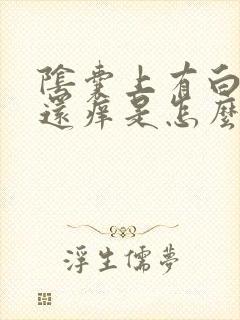 陰囊上有白
還痒是怎麼
浮生儒夢